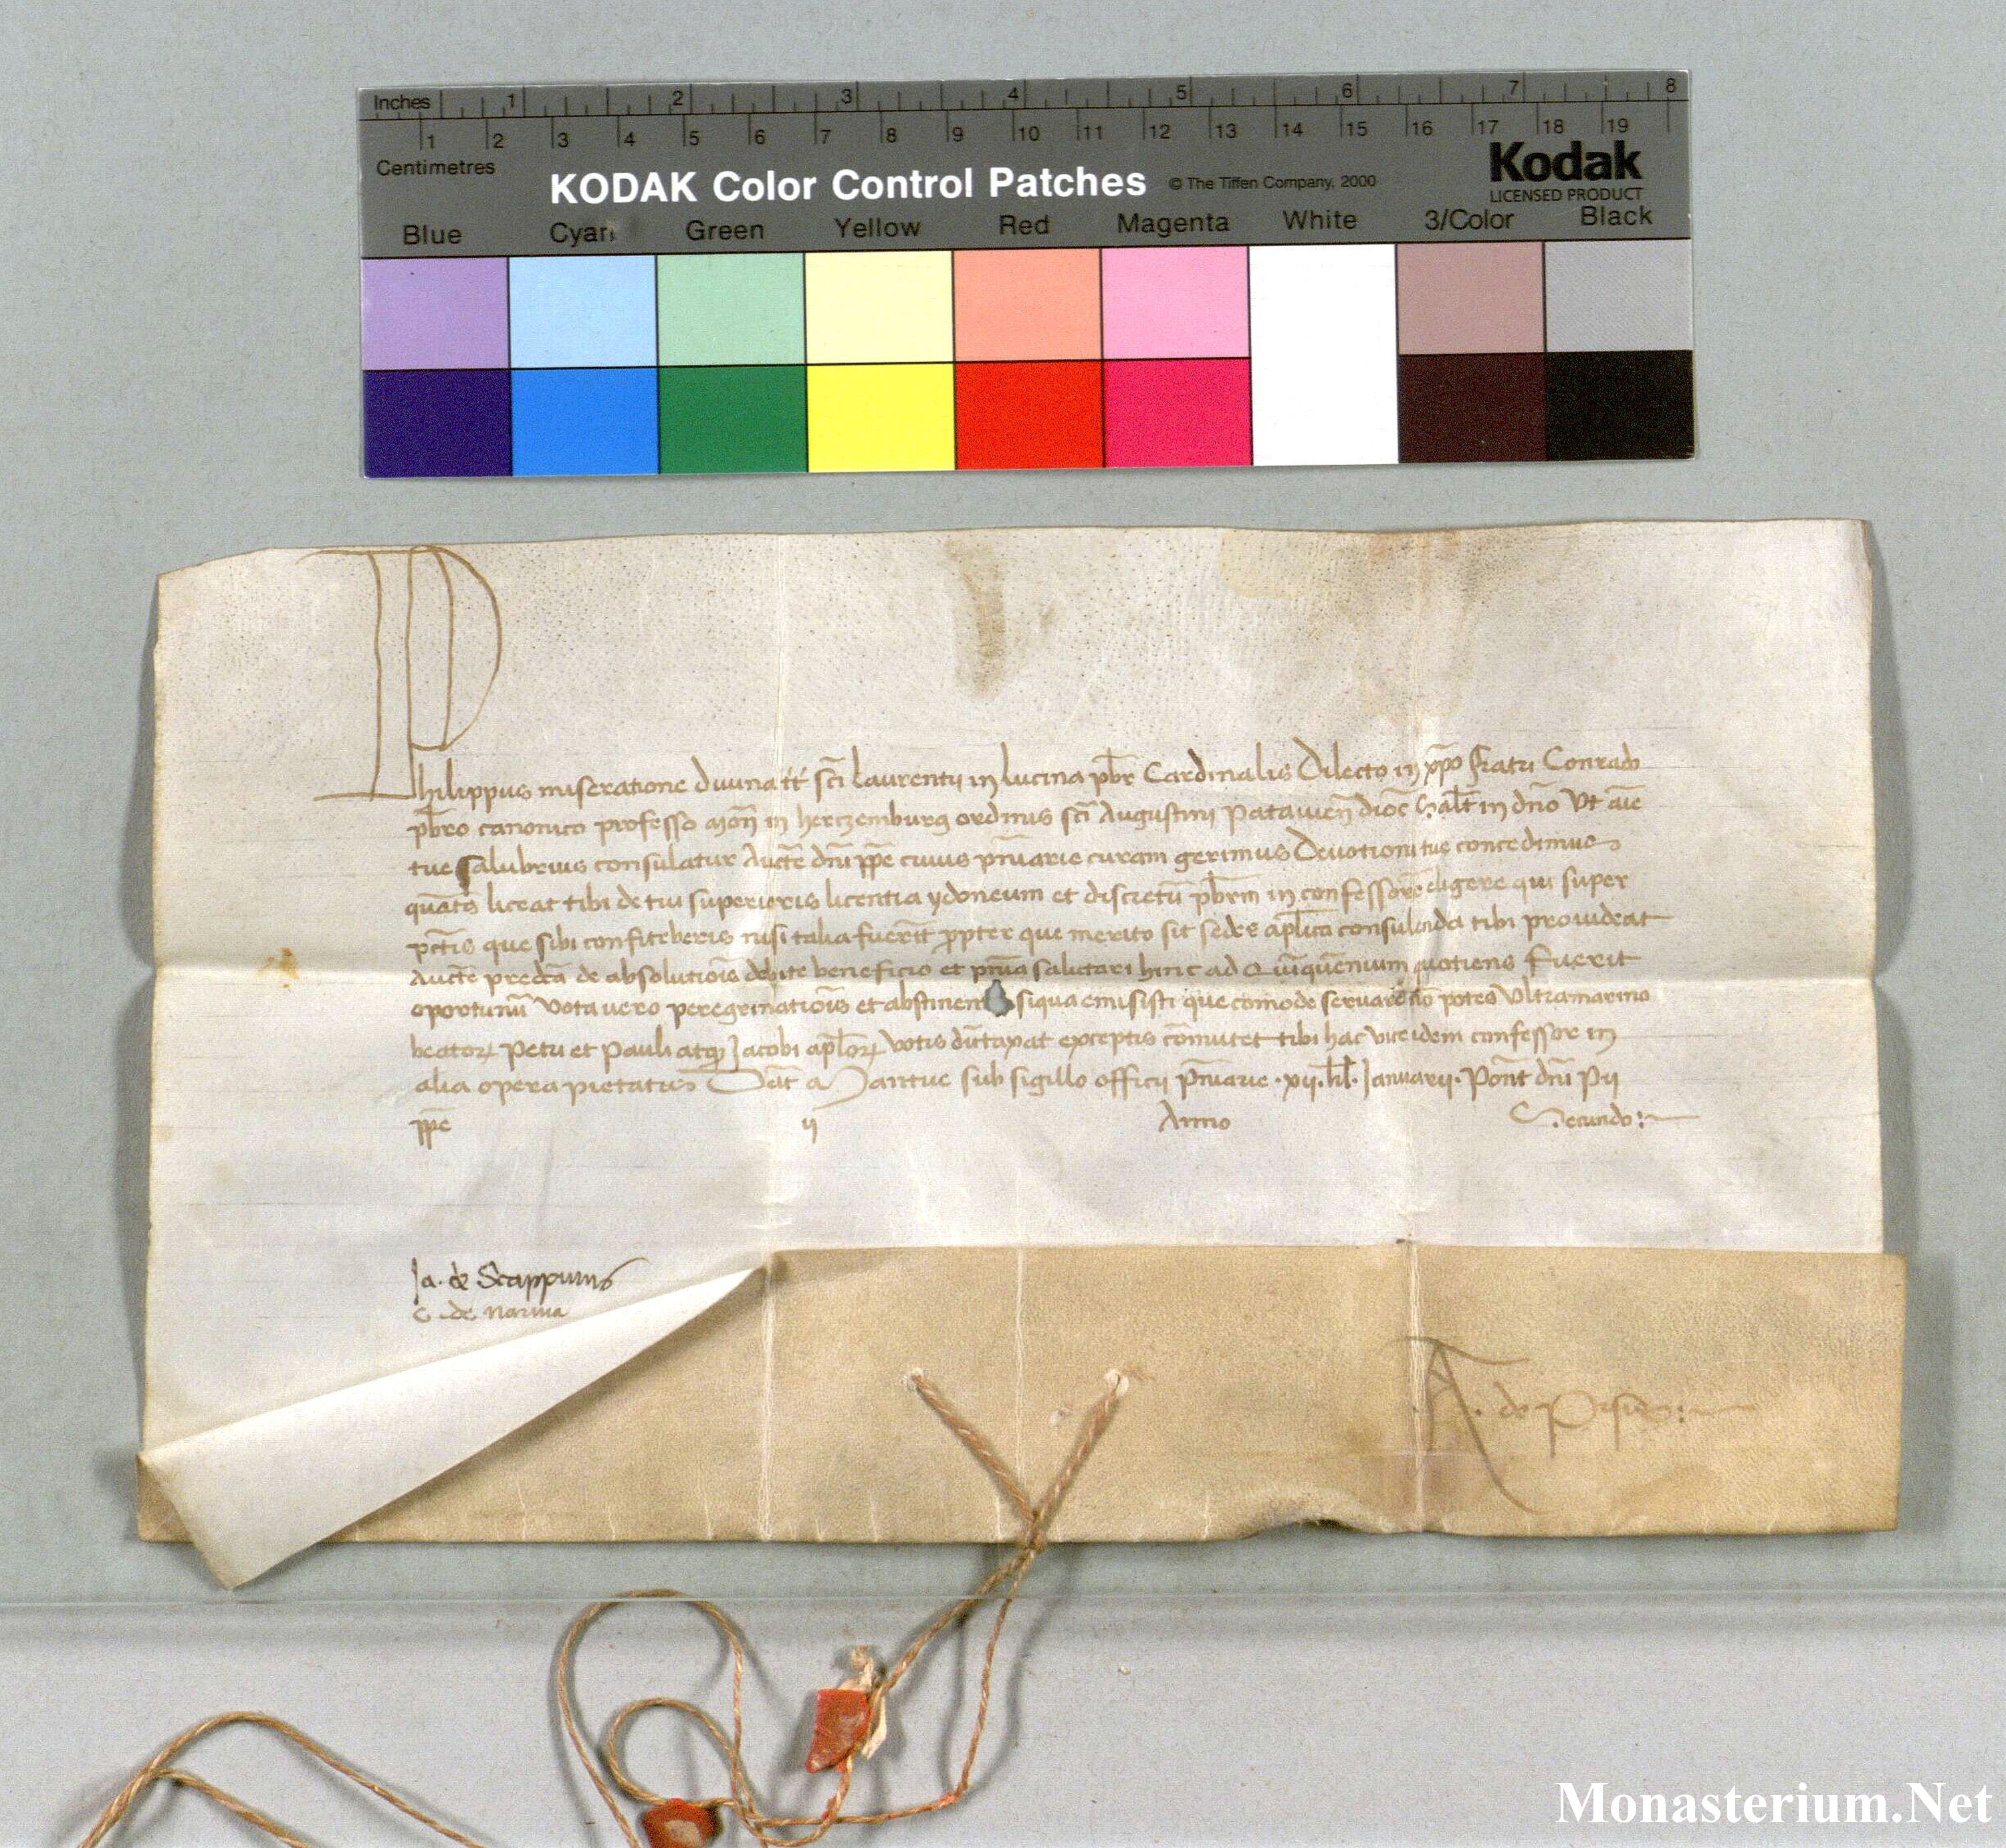 Inches 1 2 3 4 5 6 7 8
1 2 3 4 5 6 7 8 9 10 11 12 13 14 15 16 17 18 19
Centimetres
KODAK Color Control Patches © The Tiffen Company, 2000 Kodak
LICENSED PRODUCT
Blue Cyan Green Yellow Red Magenta White 3/Color Black
Philippus miseratione divina tt̄ sc̄i Laurentii in lucina pb̄r Cardinalis Dilecto in xp̄o fratri Conrado
pb̄ro canonico professo mon̄ in hertzemburg ordinis sc̄i Augustini Patavien̄ dioc̄ Salt̄ in dn̄o Ut aīe
tue salubrius consulatur Auctē dn̄i pp̄e cuius pn̄iarie curam gerimus Devotioni tue concedimus
quāto liceat tibi de tui superioris licentia ydoneum et discretū pb̄rm in confessorē eligere qui super
pctīs que sibi confiteberis nisi talia fuerīt propter que merito sit sedes apl̄ica consulenda tibi provideat
Auctē predcā de absolutiōis debite beneficio et pn̄ia salutari hinc ad Quīquēnium quotiens fuerit
oportunū Vota vero peregrinatiōis et abstinent siqua emisisti que comode servare nō potes Ultramarino
beatoꝝ Petri et Pauli atqꝫ Jacobi apl̄oꝝ votis dūtaxat exceptis cōmutet tibi hac vice idem confessor in
alia opera pietatis Dat̄ Mantue sub sigillo officii pn̄iarie .xii. kl̄. Januarii. Pont̄ dn̄i Pii
pp̄e ii Anno Secundo:
Ja. de Scappunis
C. de Narnia
A. de Pisis:
Monasterium.Net